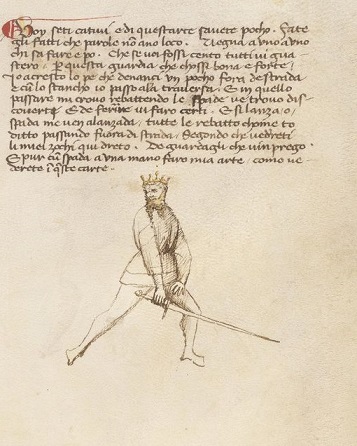 Voy seti cativi e di questarte savete pocho. Fate
gli fatti che parole nō ano loco. Vegna a uno a uno
chi sa fare e po. Che se voi fossi cento tutti vi gua
stero. p questa guardia che chossi bona e forte.
Io acresco lo pe che denanci un pocho fora de strada
e cū lo stancho io passo ala traversa. E in quello
passare mi croso rebattendo le spade ve trovo dis
coverti. E de ferire vi faro certi. E si lanza / o /
spada me ven alanzada, tutte le rebatto chome to
ditto passando fuora di strada. Segondo che vedreti
li miei zochi qui dreto. De guardagli che vin prego.
E pur cū spada a una mano faro mia arte como ve
dereto ī q̄ste carte.